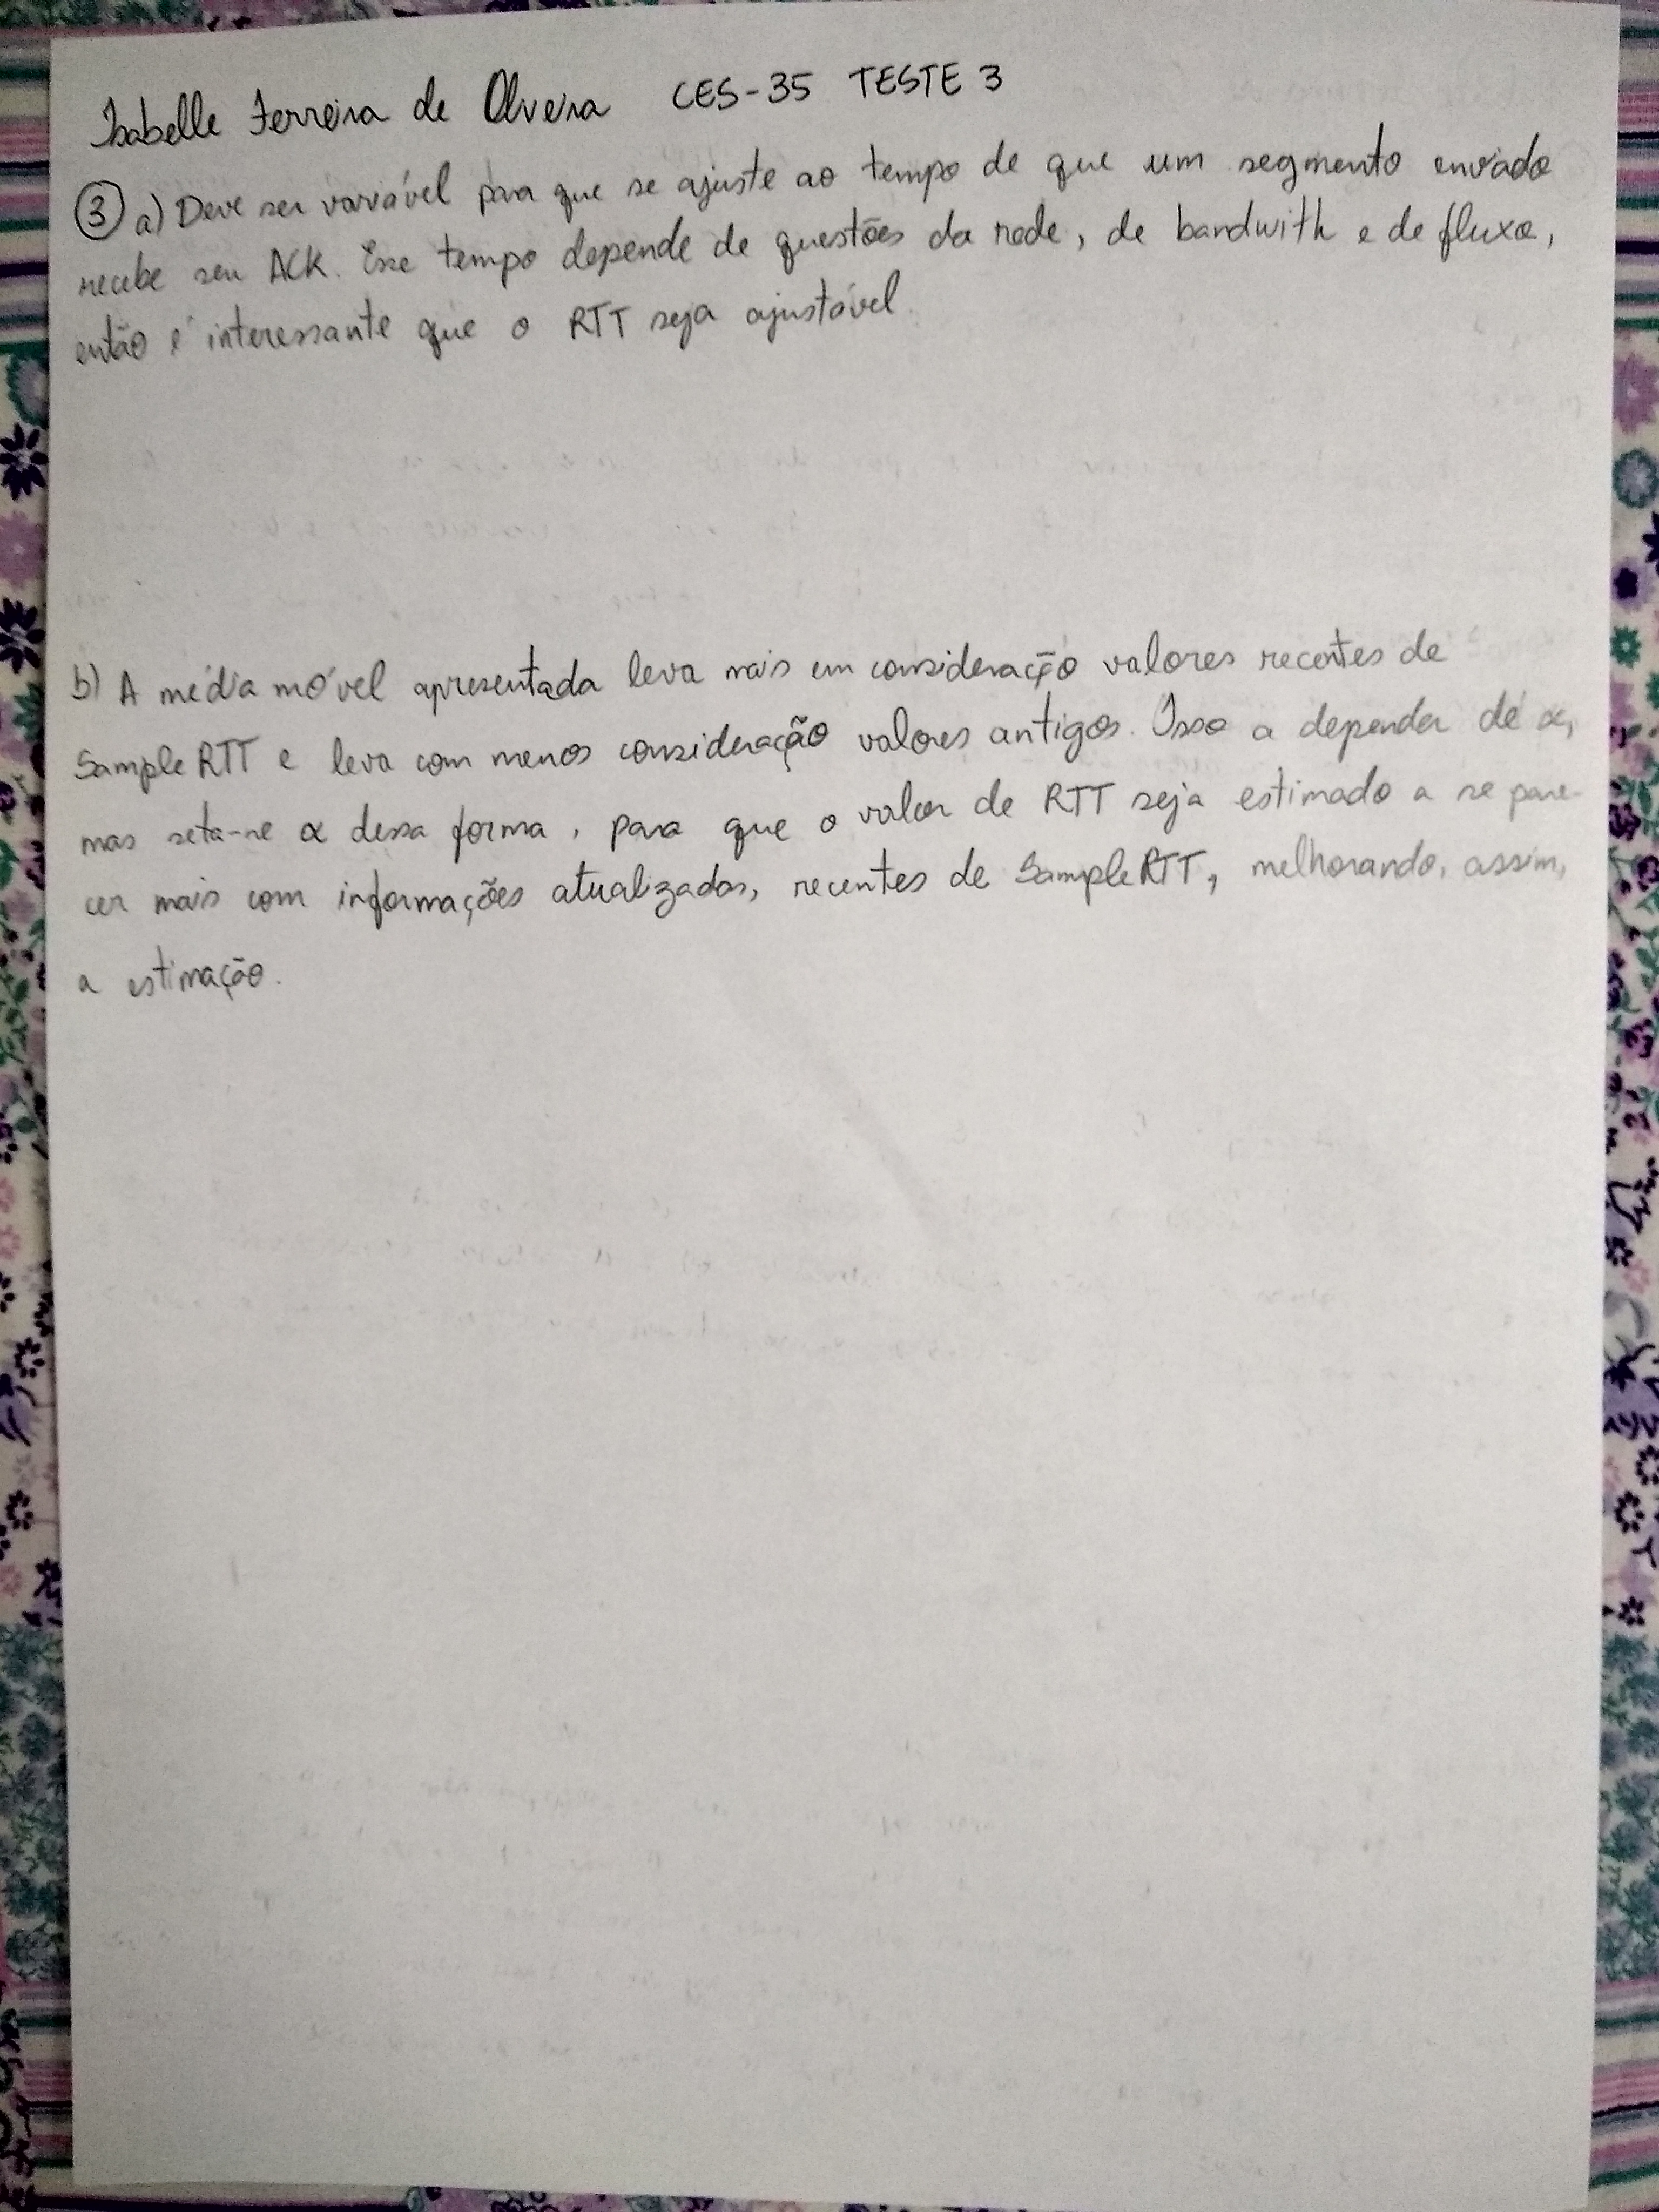 Isabelle Ferreira de Oliveira CES-35 TESTE 3
③ a) Deve ser variável para que se ajuste ao tempo de que um segmento enviado
recebe seu ACK. Esse tempo depende de questões da rede, de bandwith e de fluxo,
então é interessante que o RTT seja ajustável.
b) A média móvel apresentada leva mais em consideração valores recentes de
SampleRTT e leva com menos consideração valores antigos. Isso a depender de α,
mas seta-se α dessa forma, para que o valor de RTT seja estimado a se pare-
cer mais com informações atualizadas, recentes de SampleRTT, melhorando, assim,
a estimação.